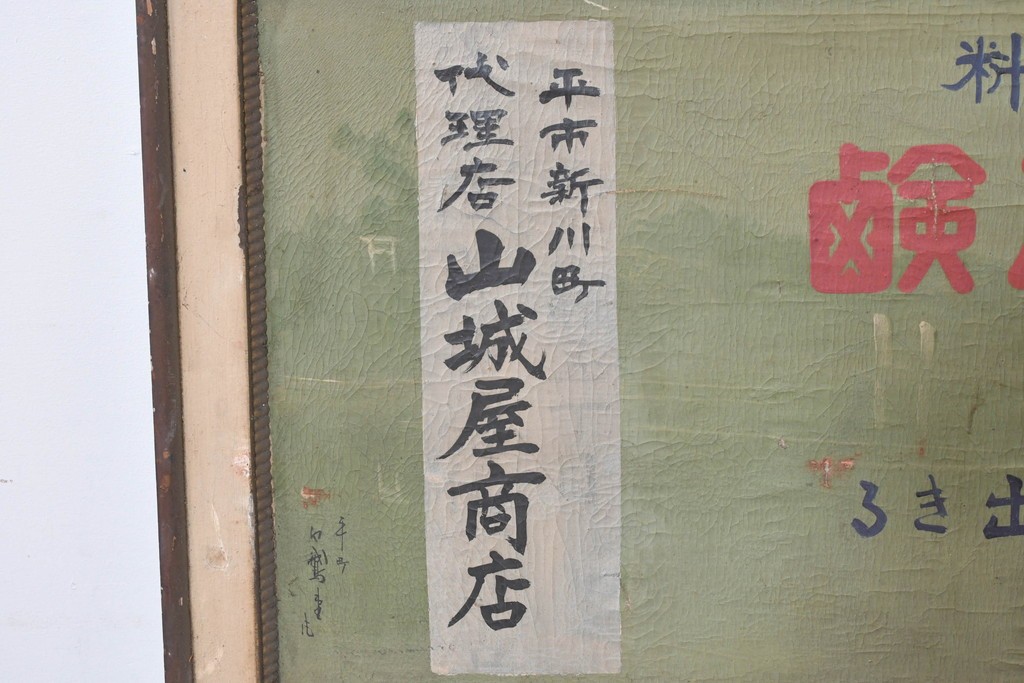 料
鹸
出きる
平市新川町
代理店 山城屋商店
平町